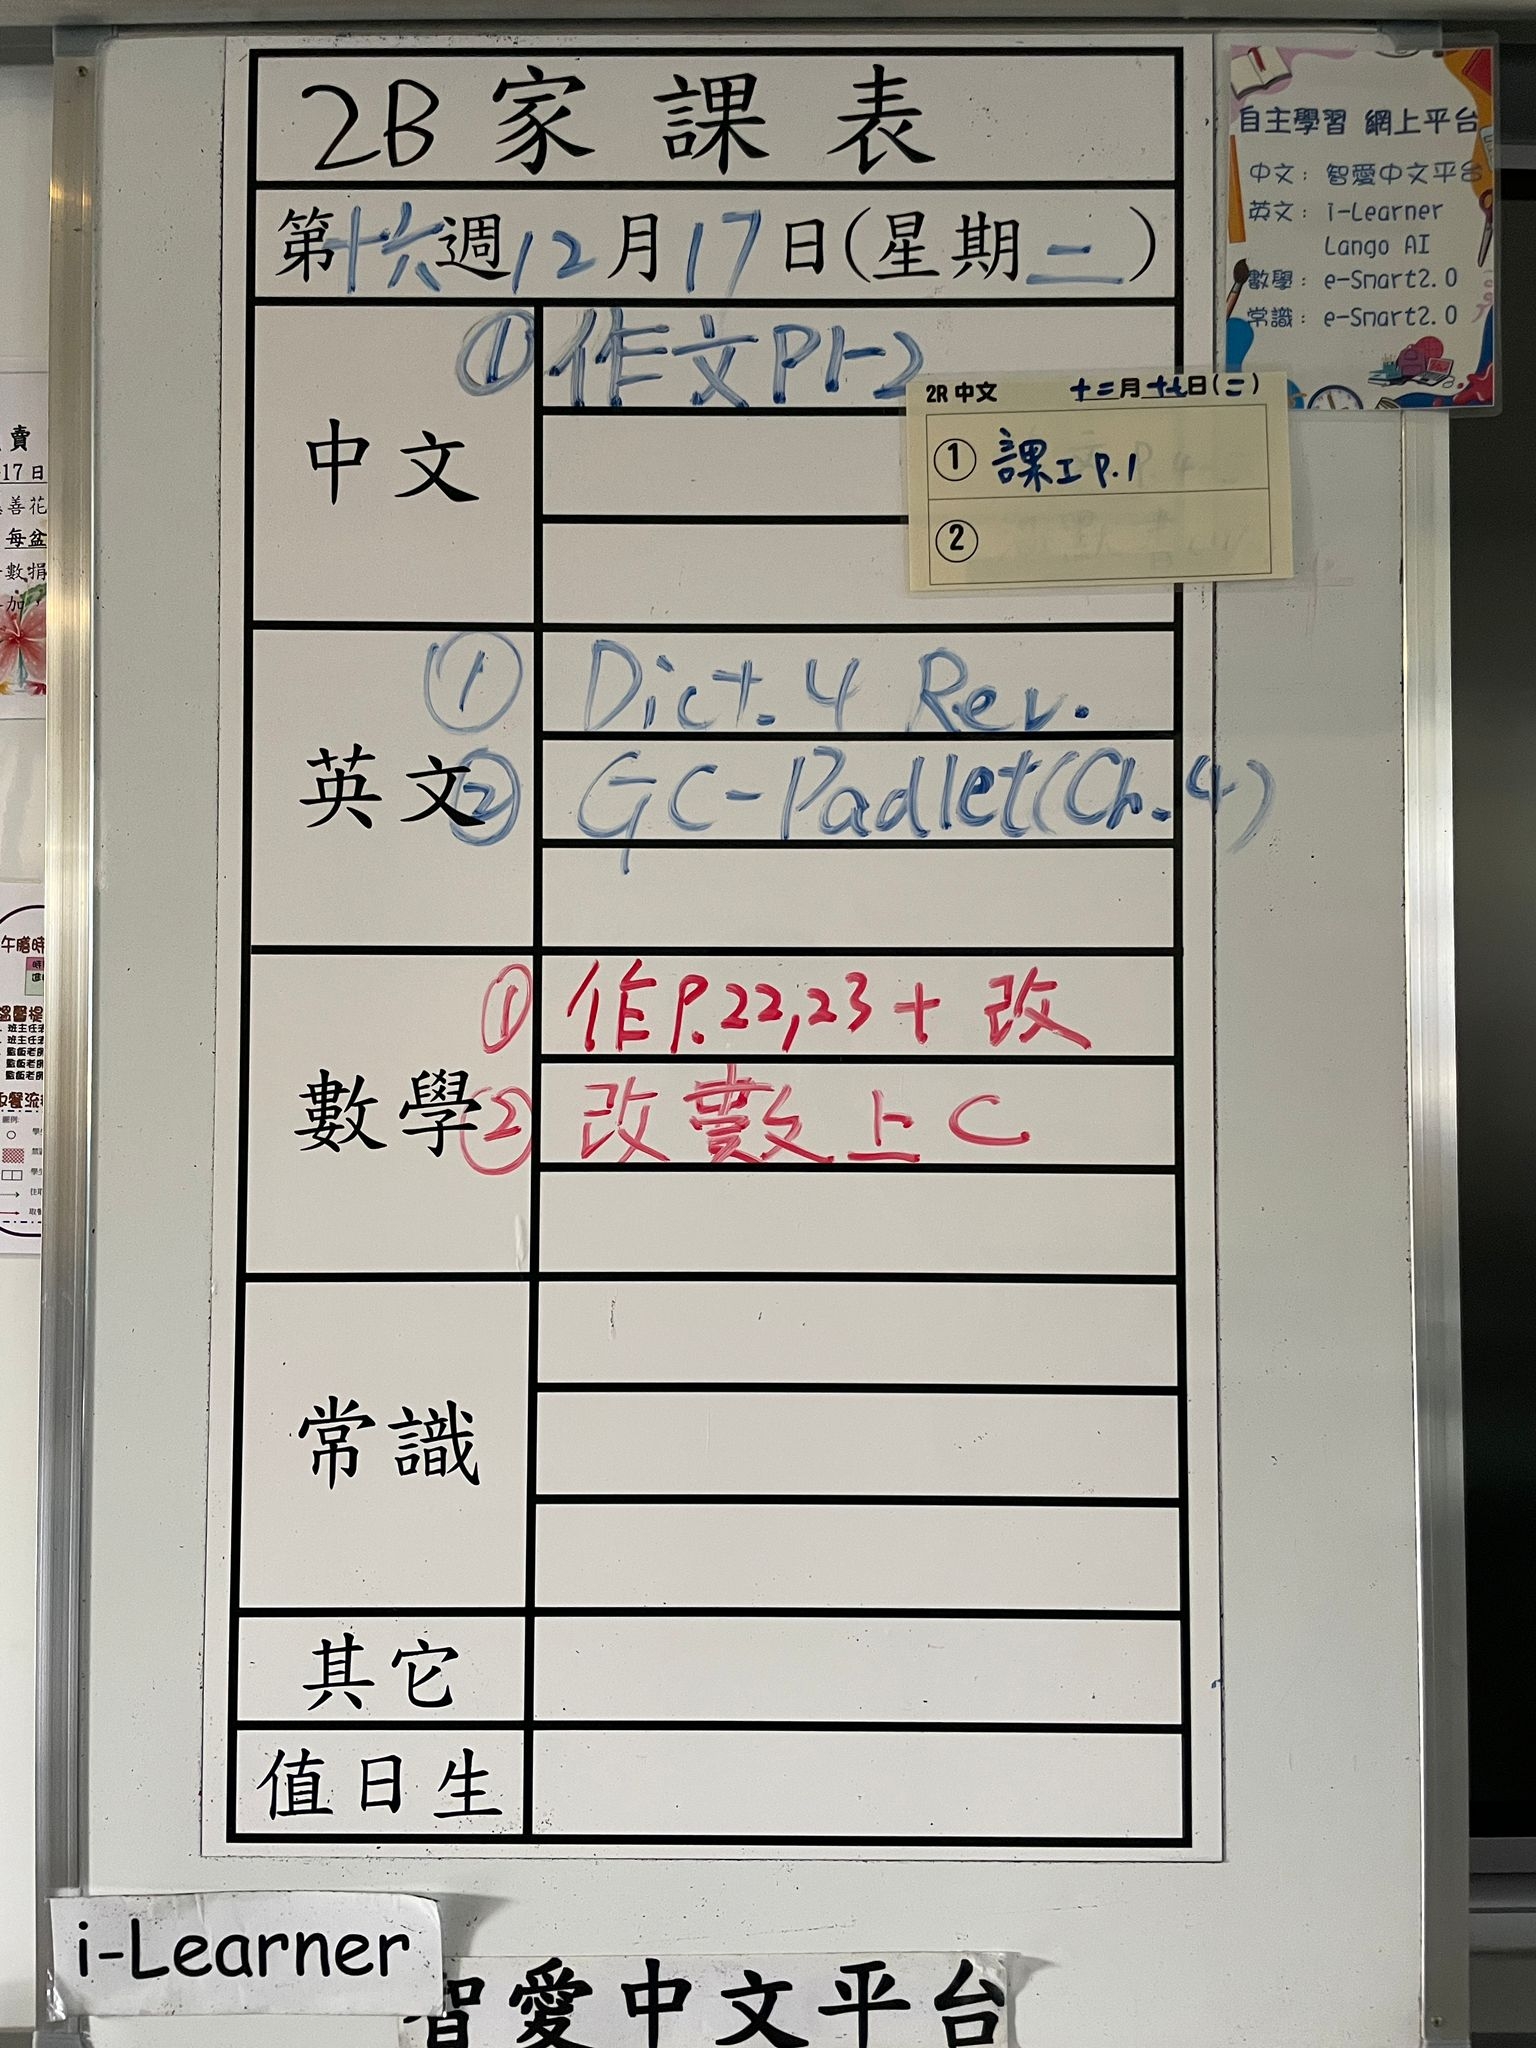 2B 家課表
第十六週12月17日(星期二)
中文
① 作文P1-2
2R 中文 十二月十七日(二)
① 課工 P.1
②
英文
① Dict. 4 Rev.
② GC-Padlet(Ch.4)
數學
① 作P.22,23 + 改
② 改數上C
常識
其它
值日生
自主學習 網上平台
中文: 智愛中文平台
英文: i-Learner
Lango AI
數學: e-Smart2.0
常識: e-Smart2.0
i-Learner
智愛中文平台
賣
17日
善花
每盆
數捐
加,
午膳時
溫馨提
班主任
班主任
監飯老師
監飯老師
監飯老師
取餐流
圖例: